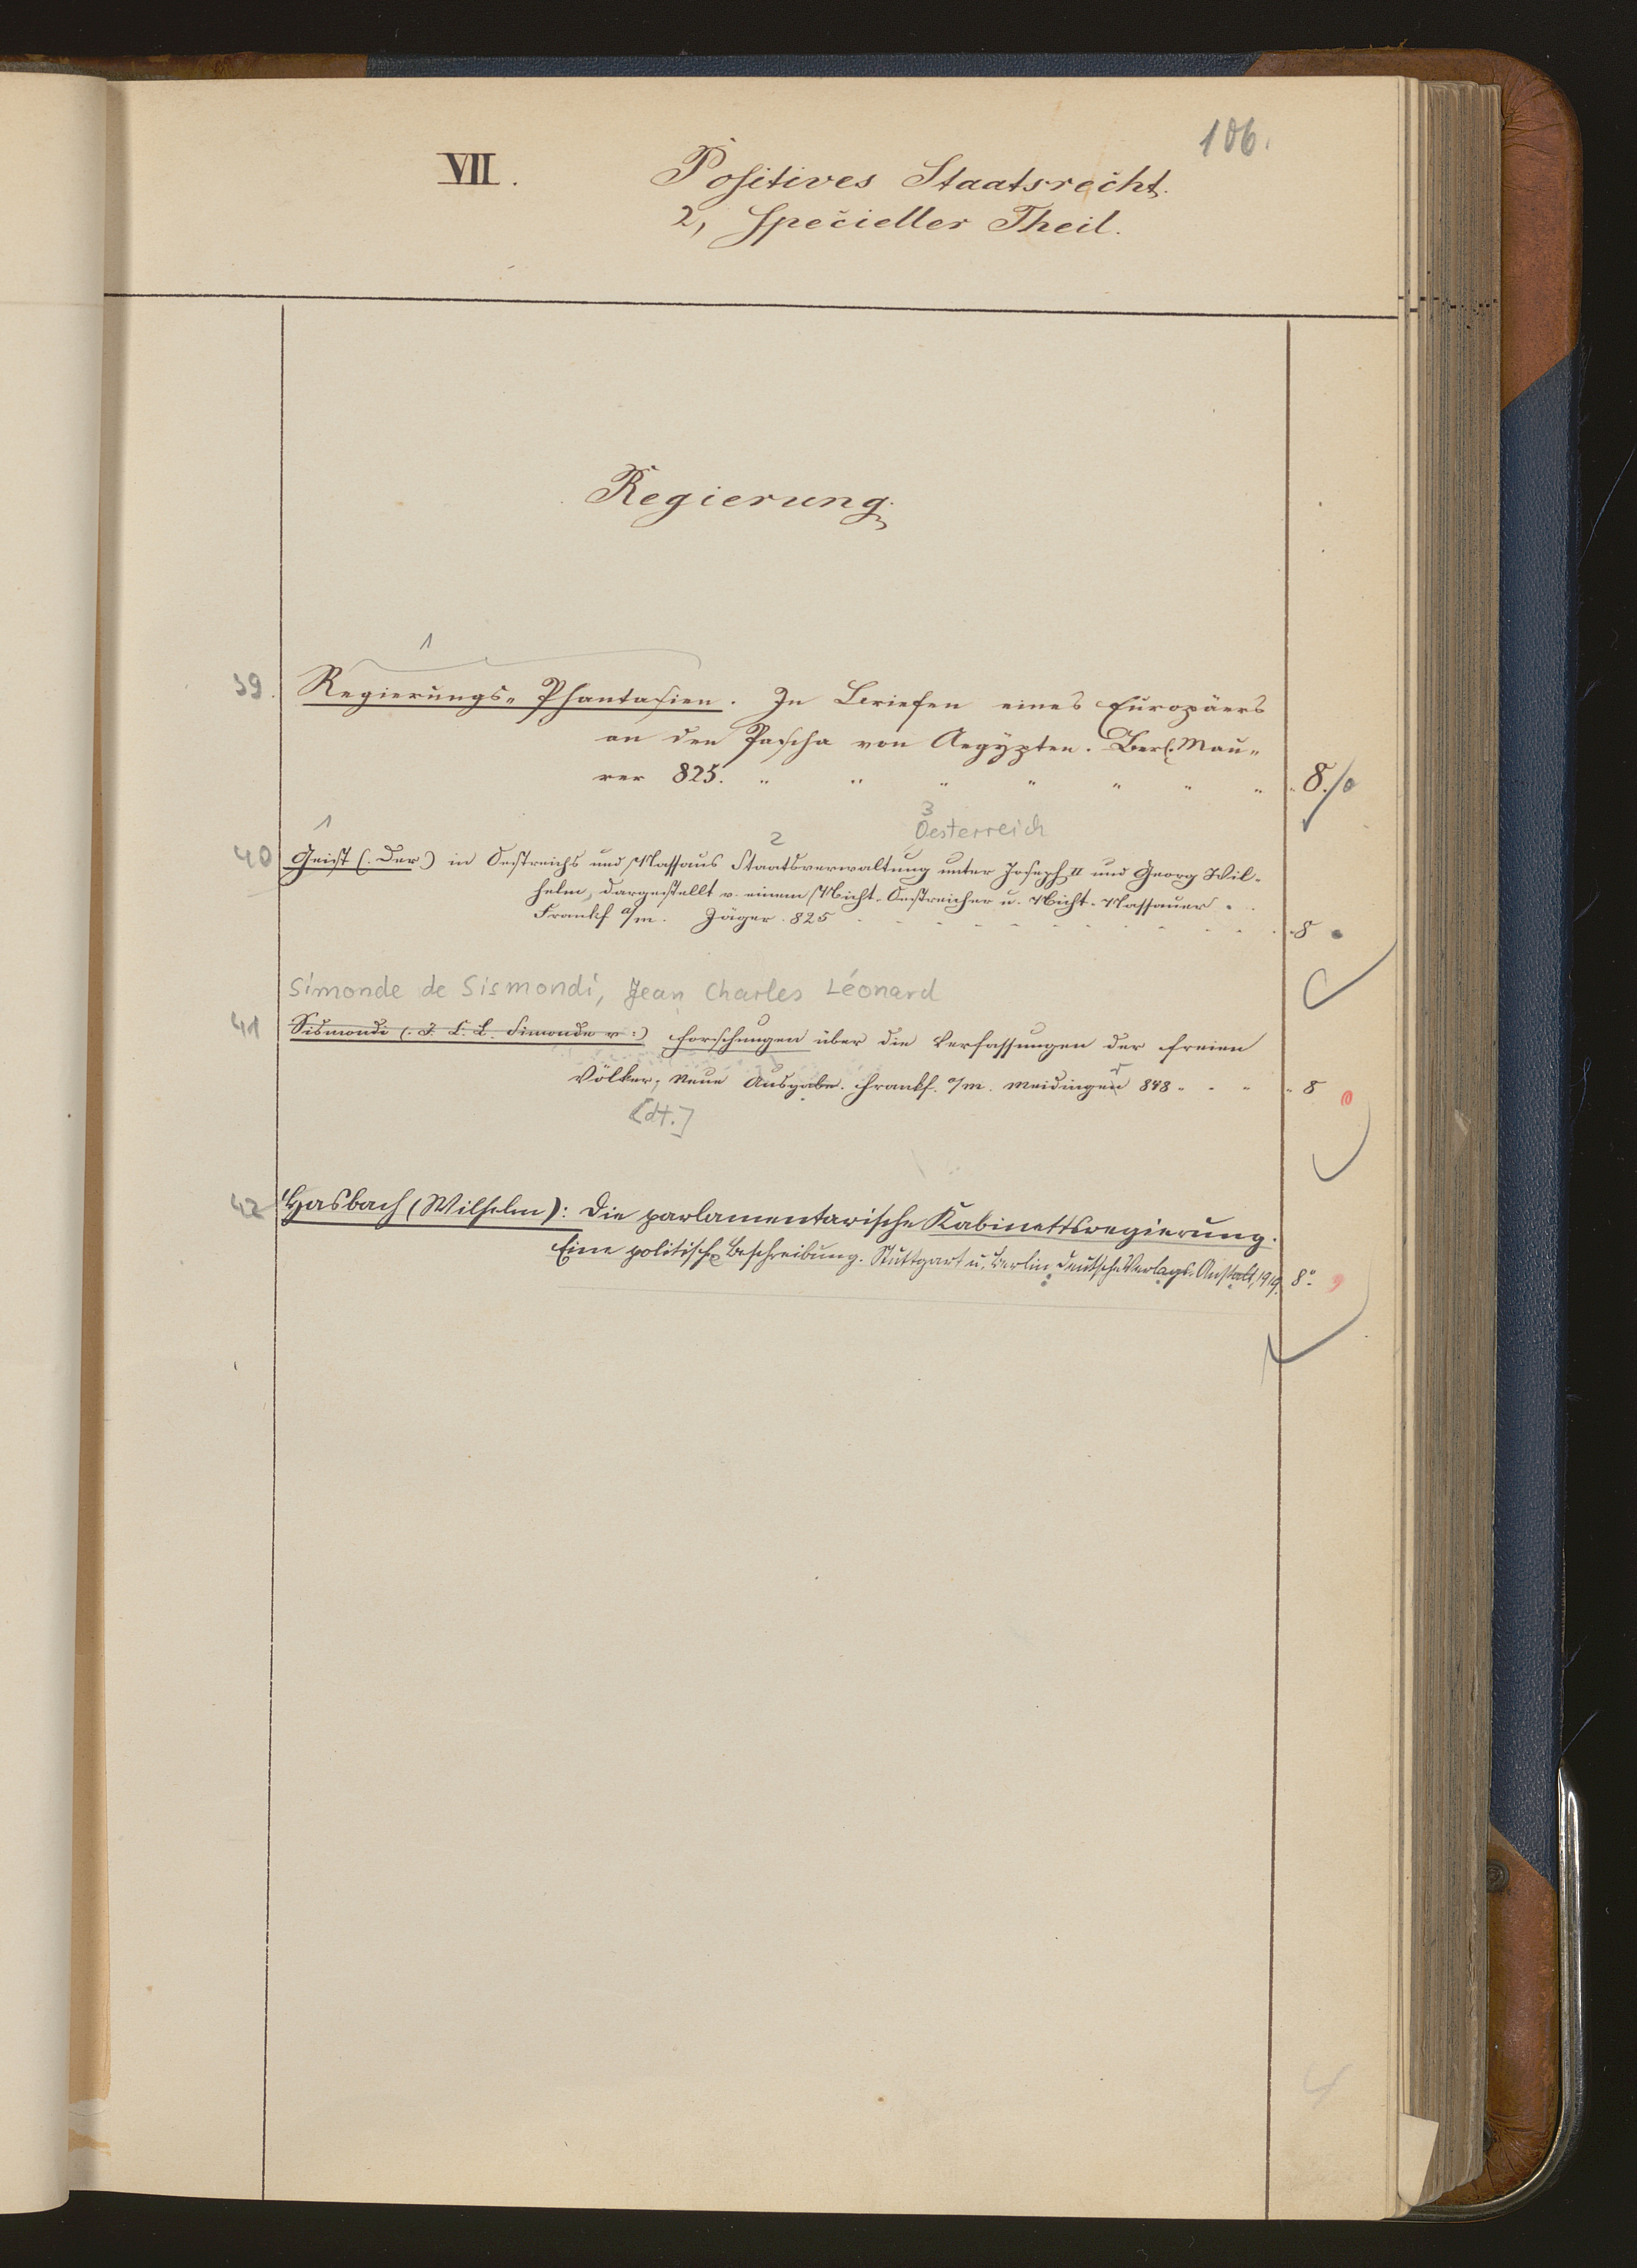 106.
VII. Positives Staatsrecht.
2, Specieller Theil.
Regierung.
1
39. Regierungs-Phantasien. In Briefen eines Europäers
an den Pascha von Aegypten. Berl. Mau-
rer 825. " " " " " " " " 8.
3
1 2 Oesterreich
40 Geist (: Der) in Oestreichs und Nassaus Staatsverwaltung unter Joseph II und Georg Wil-
helm, dargestellt v. einem Nicht-Oestreicher u. Nicht-Nassauer.
Frankf a/m. Jäger. 825 8
Simonde de Sismondi, Jean Charles Léonard
41 Sismondi (: J. C. L. Simonde v :) Forschungen über die Verfassungen der freien
Völker; Neue Ausgabe. Frankf. a/m. Meidinger 848 " " " " 8
[dt.]
42 Hasbach (Wilhelm): Die parlamentarische Kabinettsregierung.
Eine politische Beschreibung. Stuttgart u. Berlin: Deutsche Verlags-Anstalt, 1919. 8°.